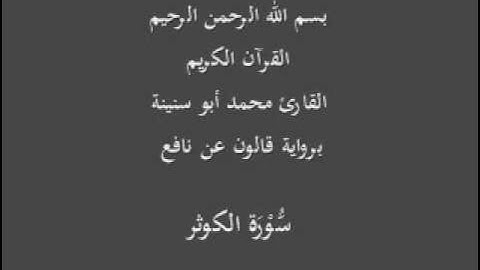 بسم الله الرحمن الرحيم
القرآن الكريم
القارئ محمد أبو سنينة
برواية قالون عن نافع
سُّوْرَة الكوثر